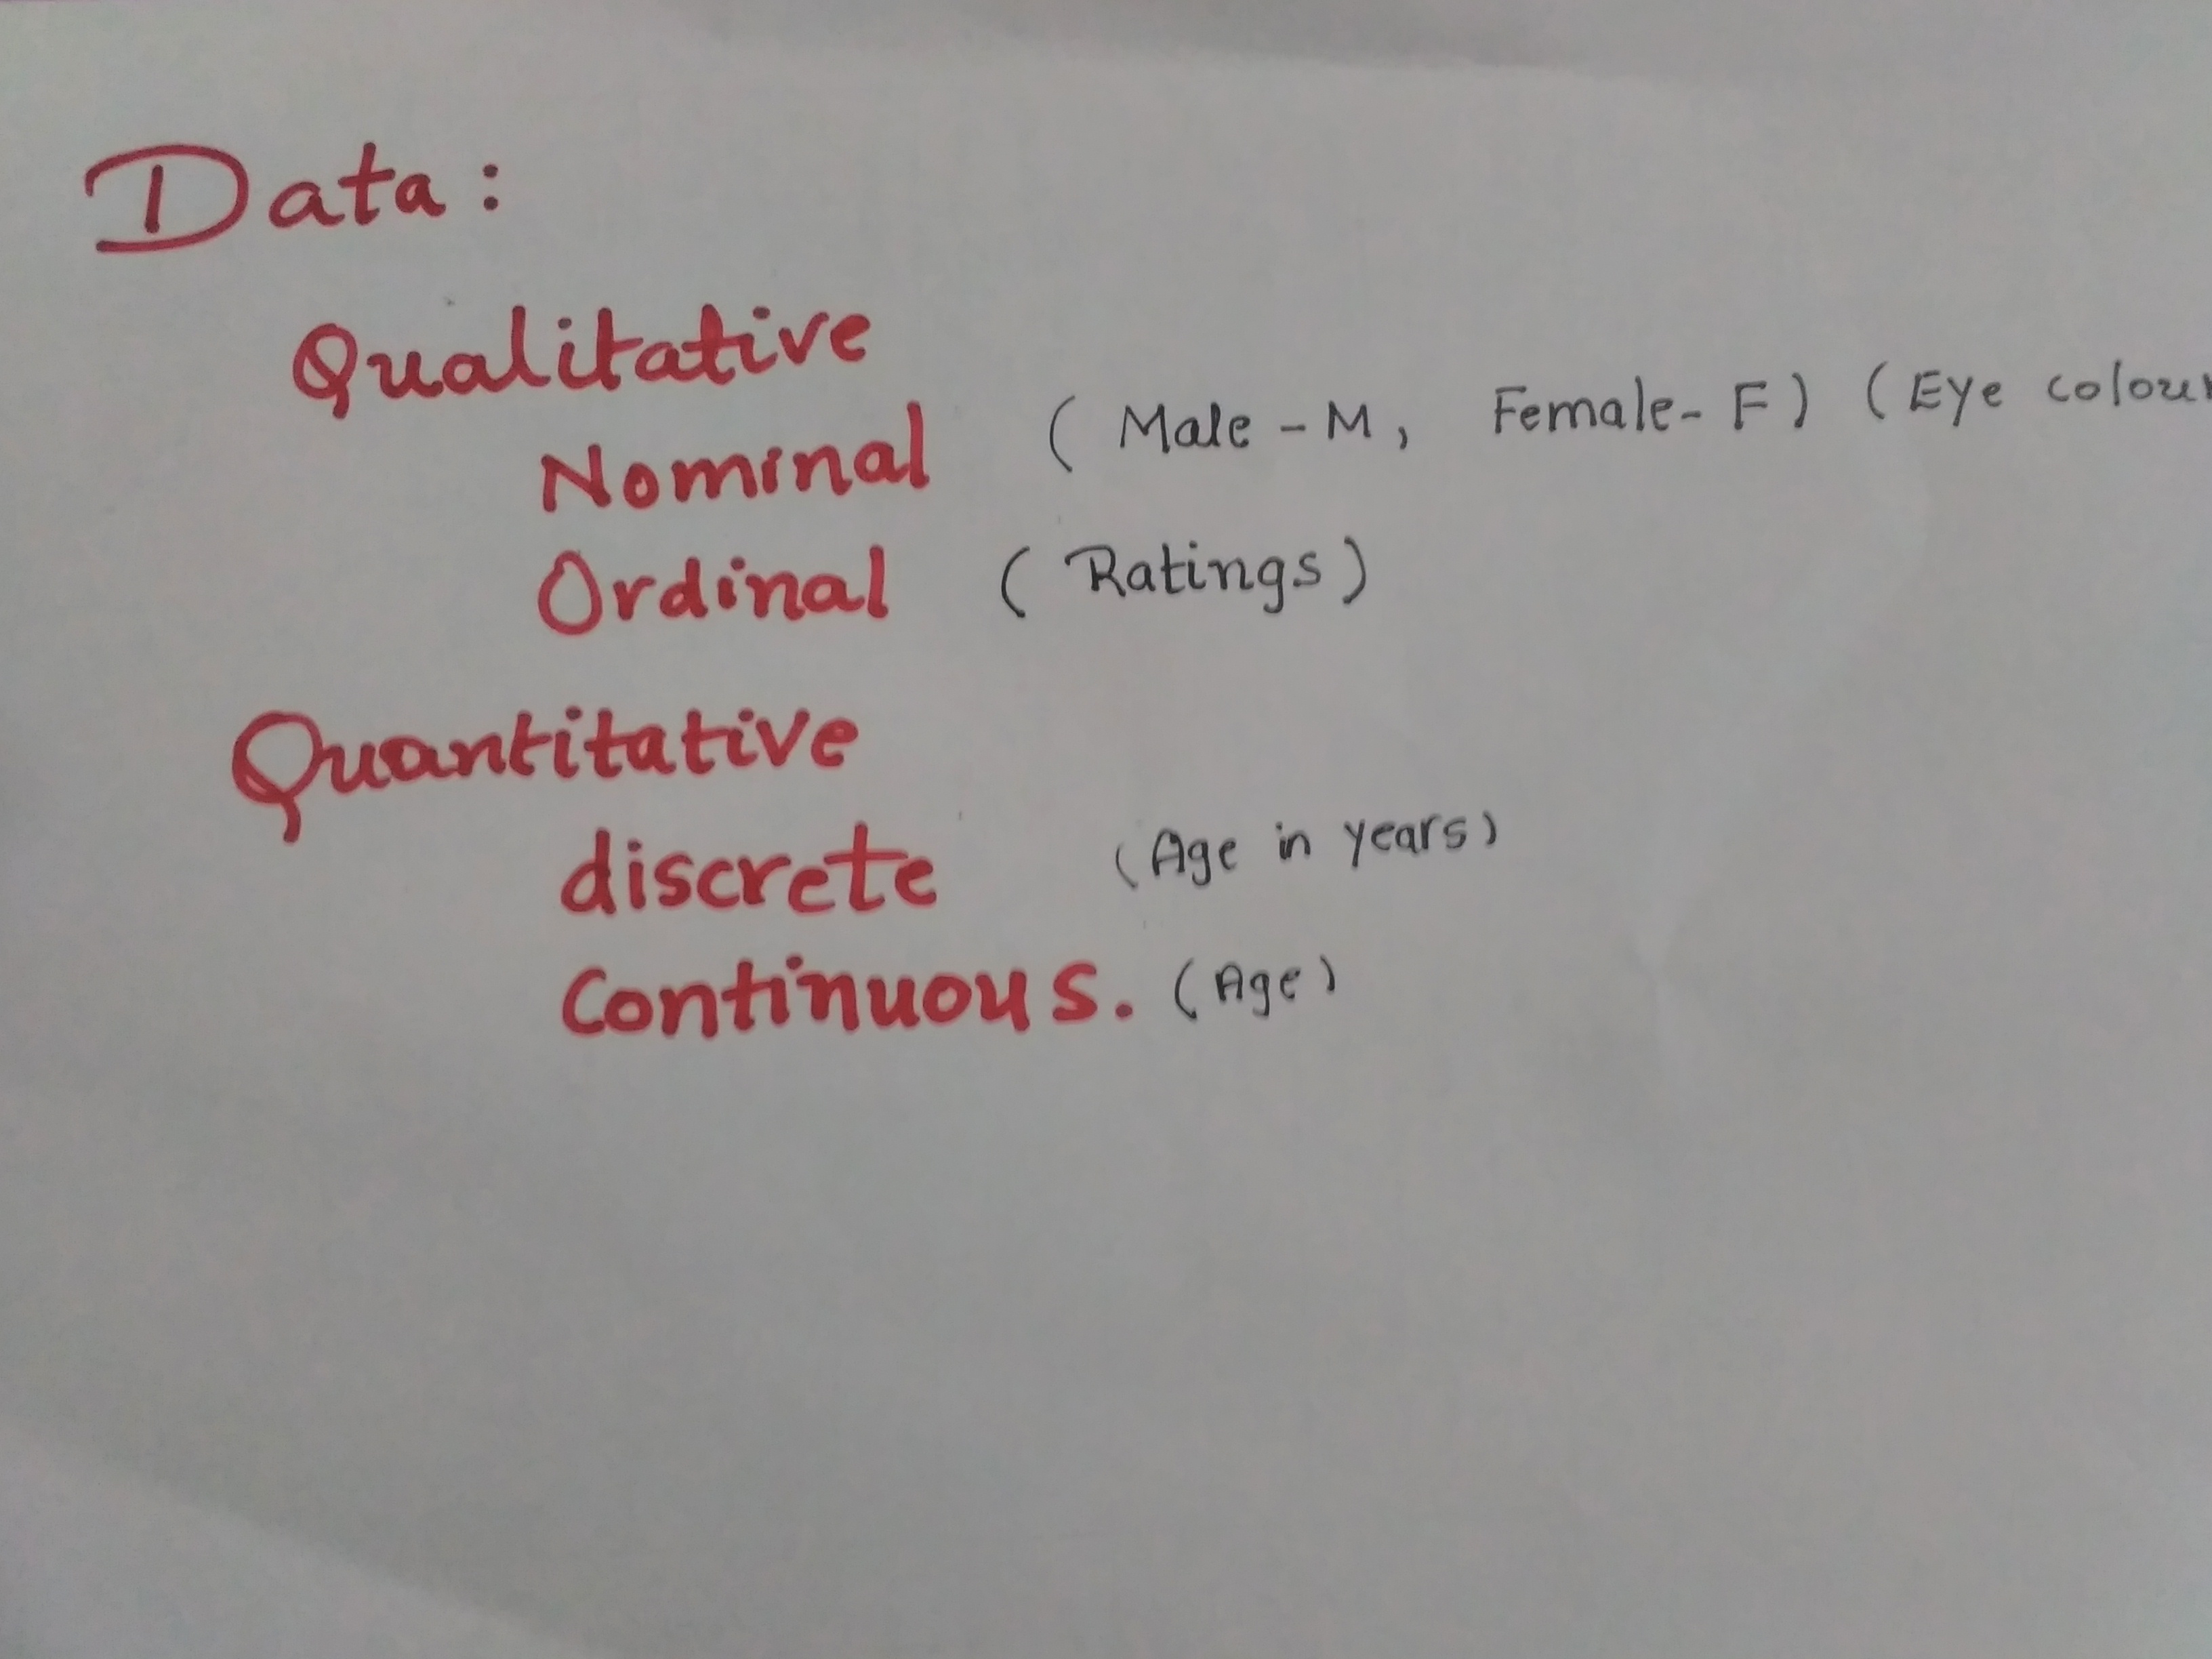 Data:
Qualitative
Nominal ( Male - M, Female - F) (Eye colour
Ordinal ( Ratings )
Quantitative
discrete (Age in years)
Continuous. (Age)